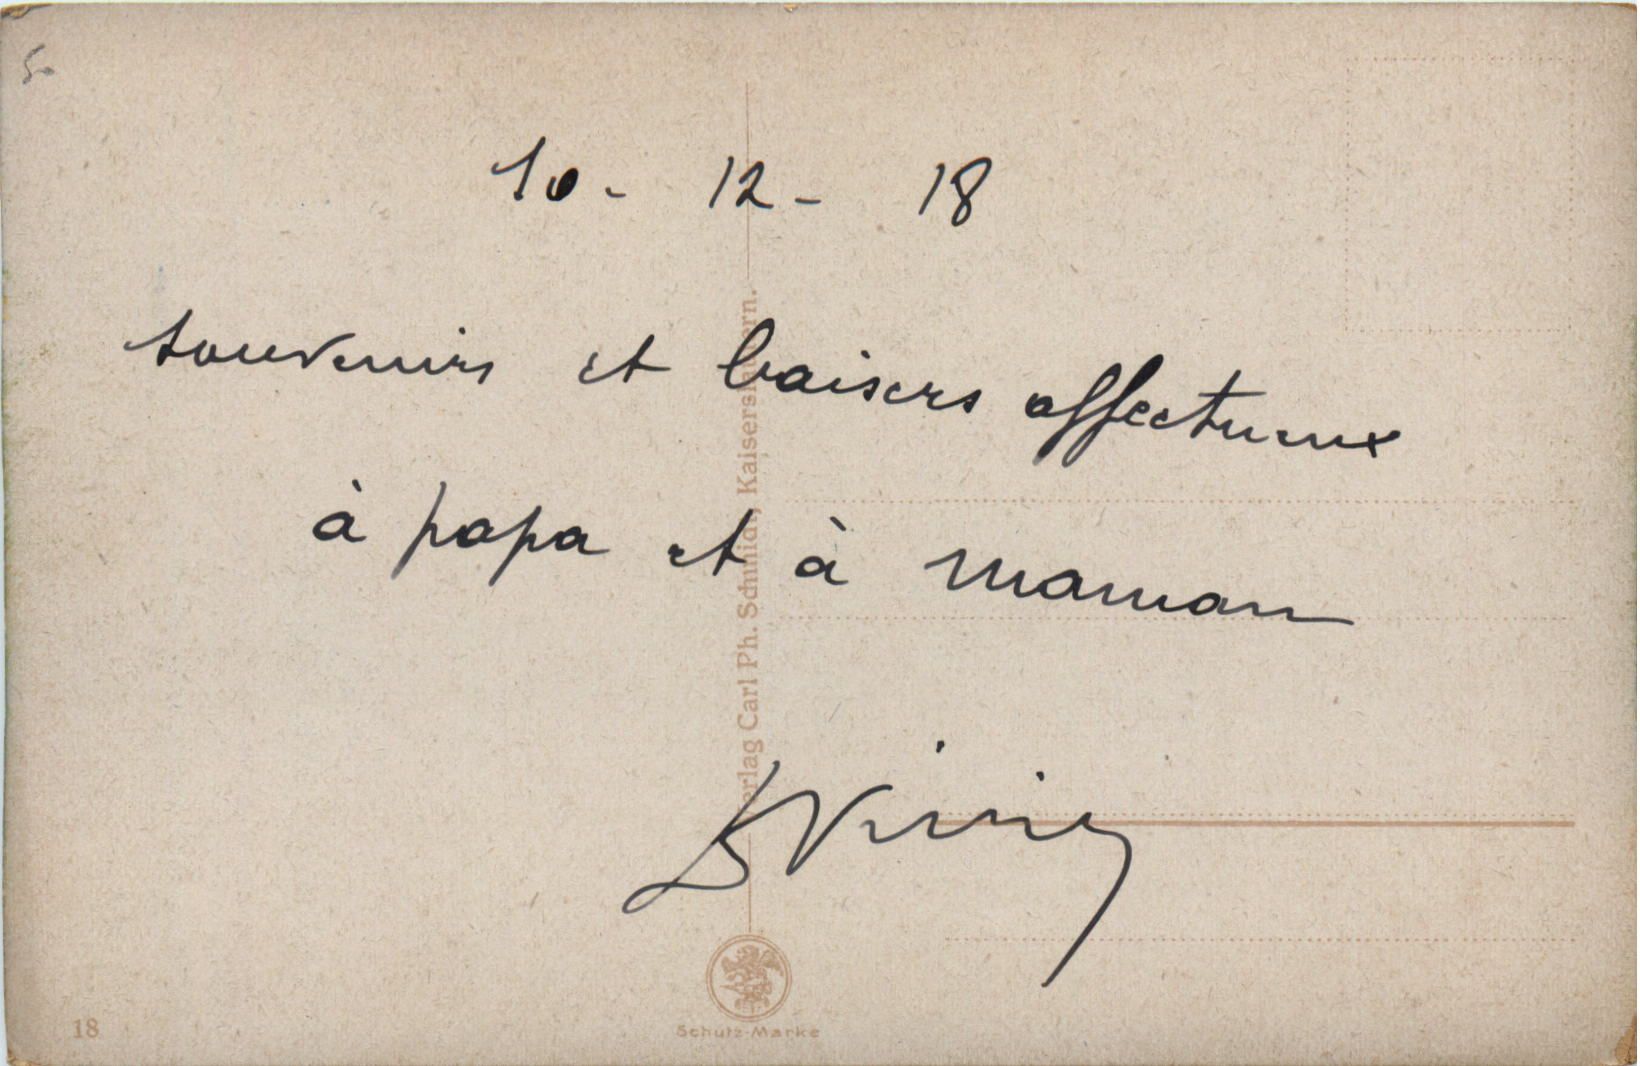 10 - 12 - 18
souvenirs et baisers affectueux
à papa et à maman
Verlag Carl Ph. Schmidt, Kaiserslautern.
Schutz-Marke
18